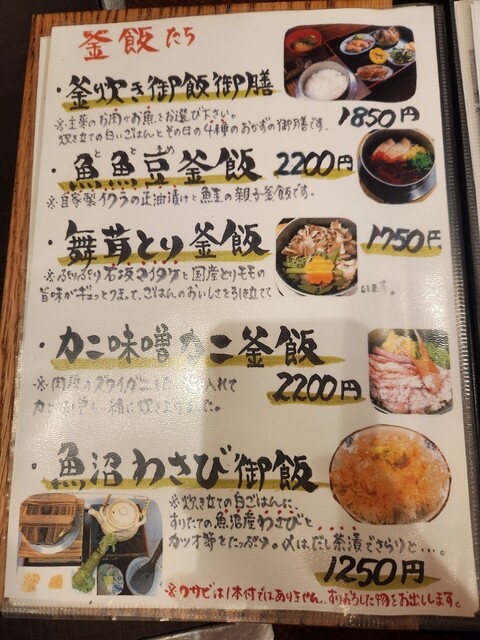 釜飯たち
・釜炊き御飯御膳
※主菜のお肉かお魚をお選び下さい。
炊き立ての白いごはんとその日の4種のおかずの御膳です。
1850円
とと まめ
・魚魚豆釜飯 2200円
※自家製イクラの正油漬けと鮭の親子釜飯です。
・舞茸とり釜飯 1750円
※ぷりっぷり石坂マイタケと国産とりモモの
旨味がギュッとつまって、ごはんのおいしさを引き立て
います。
・カニ味噌カニ釜飯
※肉厚のズワイガニを 入れて
2200円
カニ味噌 一緒に炊き上げました。
・魚沼わさび御飯
※炊き立ての白ごはんに
すりたての魚沼産わさびと
カツオ節をたっぷり。〆はだし茶漬でさらりと…。
1250円
※ワサビは1本付ではありません。すりおろした物をお出しします。